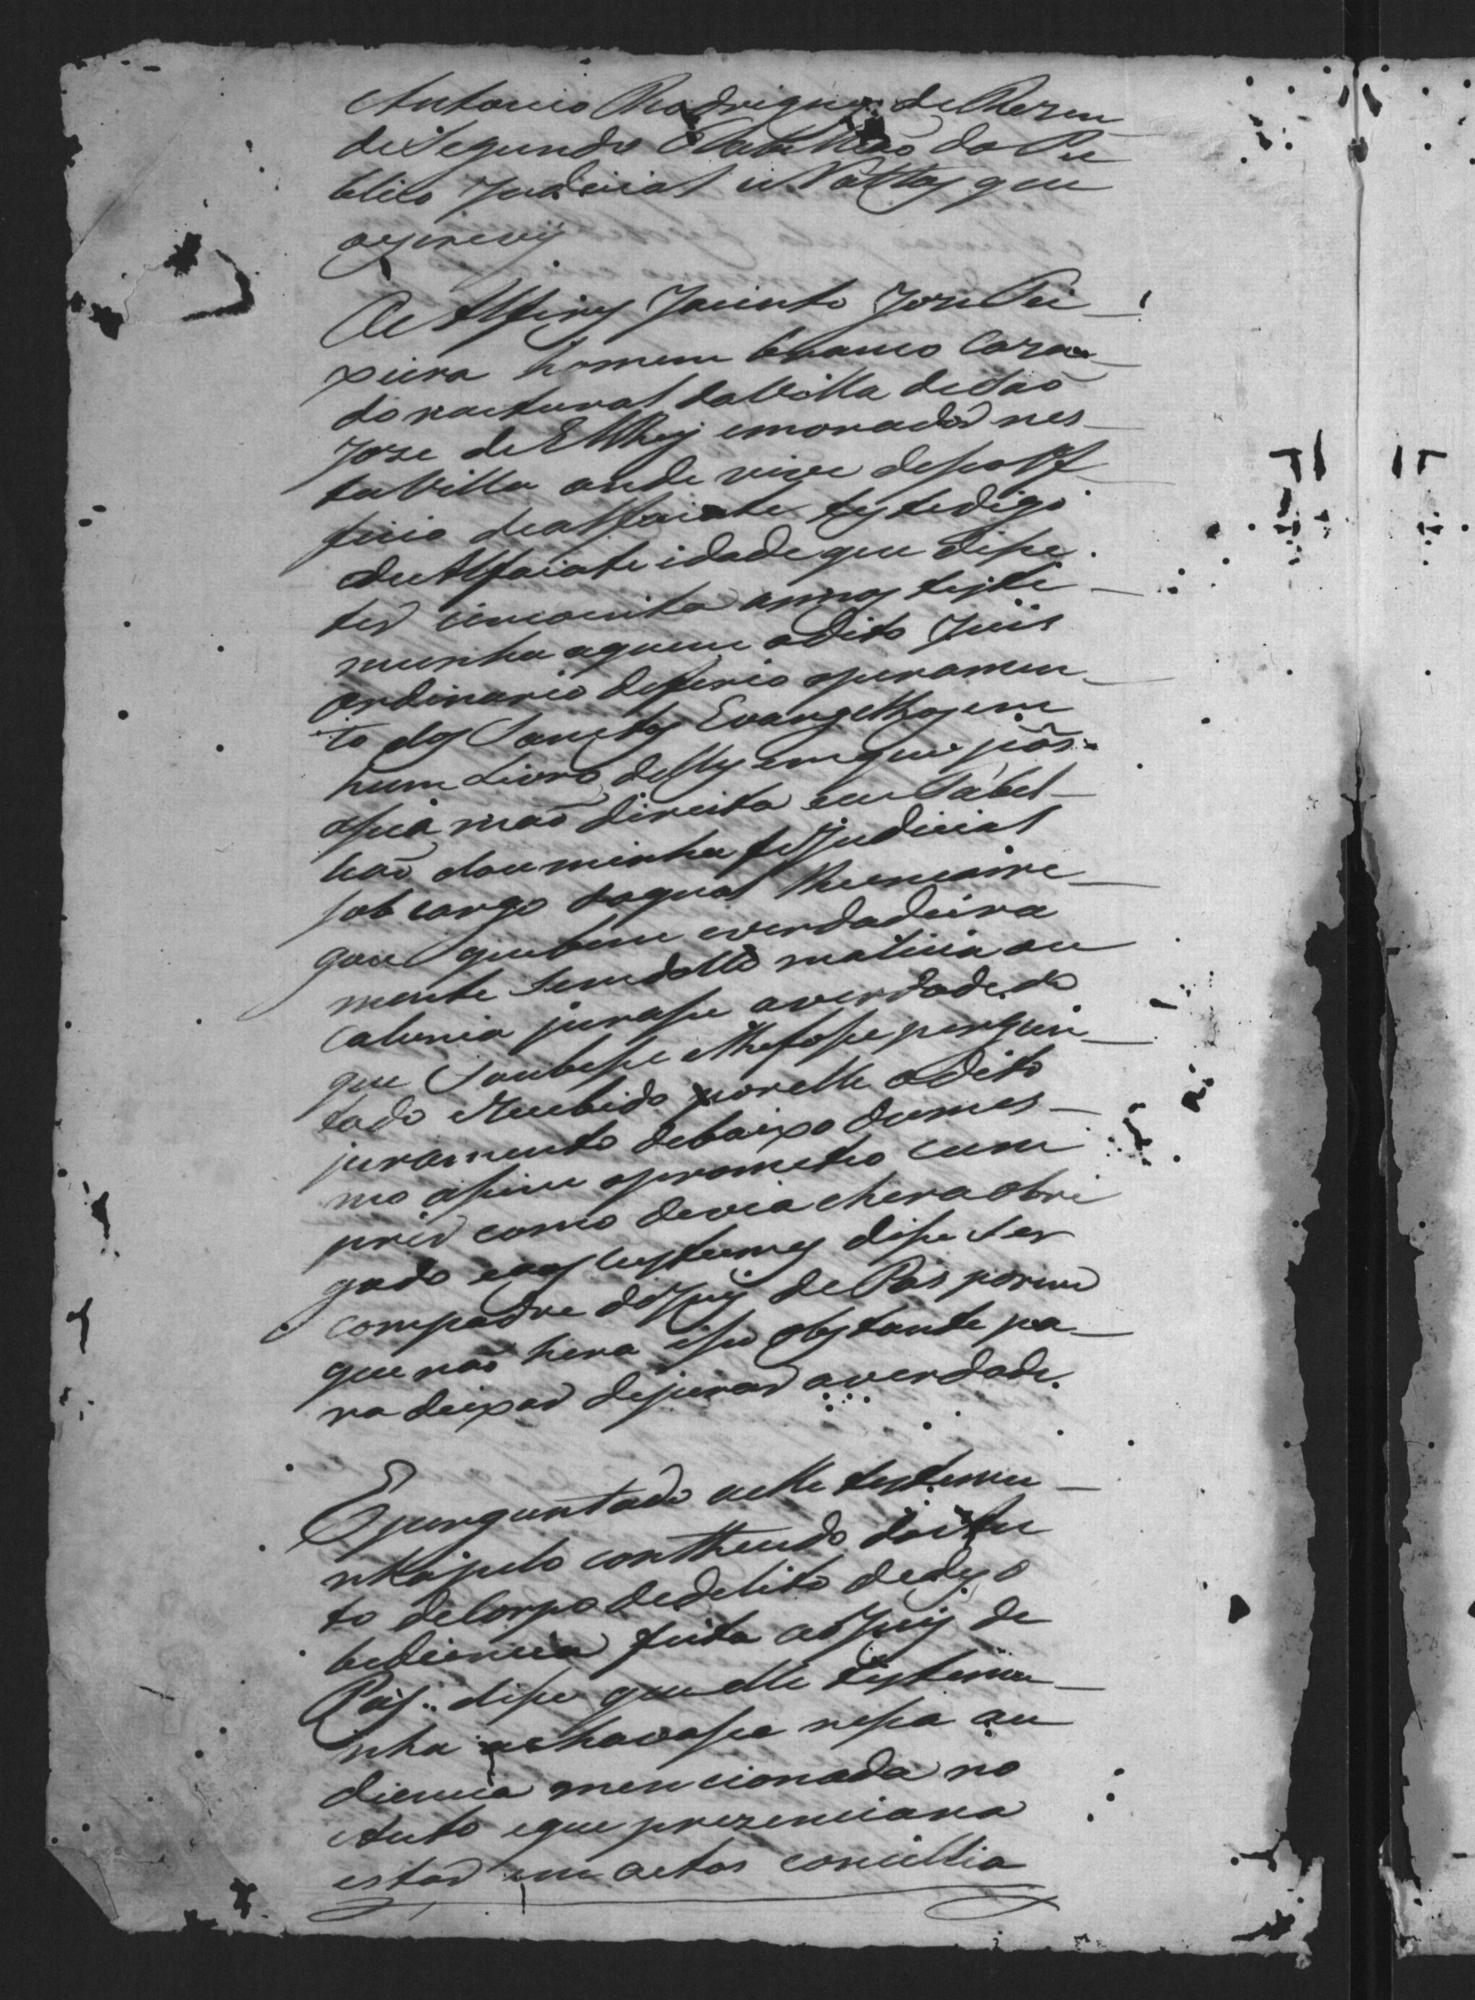 Antonio Rodrigues de Rezen
de Segundo Tabelliaõ do Pu
blico Judicial e Nottas que
o escrevy
O Alferes Jacinto Joze Tei
xeira homem branco Caza
do natural da Villa de Saõ
Joze de El Rey emorador nes
ta Villa onde vive deseo off
ficio de alfaiate este digo
de Alfaiate idade que disse
ter sincoenta annos teste
munha aquem o dito Juis
ordinario deferio ojuramen
to dos Sanctos Evangelhos em
hum Livro delles em que pôs
asua maõ direita eeu Tabel
liaõ dou minha fé Judicial
sob cargo do qual lhe encarre
gou que bem everdadeira
mente sem dollo malicia ou
calunia jurasse averdade do
que Soubesse elhefosse pergun
tado eRecebido por elle o dito
juramento debaixo do mes
mo assim oprometeo cum
prir como devia ehera obri
gado eaos custumes disse ser
compadre do Juis de Pas porem
que naõ hera isso obstante pa
ra deixar dejurar averdade.
E perguntado aelle testemu
nha pelo contheudo do Au
to de Corpo de delito dedeso
bediencia feita ao Juis de
Pas disse que elle testemu
nha achavasse nessa au
diencia mencionada no
Auto eque prezenciara
estar em actos concillia